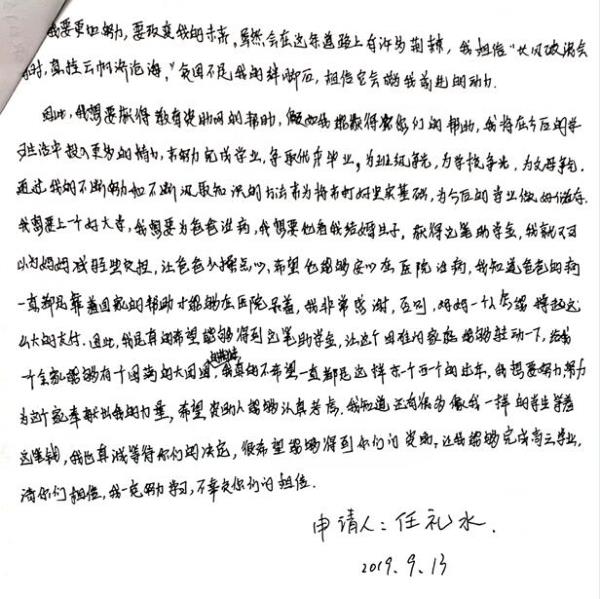 我要更加努力,要改变我的未来,虽然会在这条道路上有许多荆棘,我相信“长风破浪会
有时,直挂云帆济沧海。”贫困不是我的绊脚石,相信它会成为我前进的动力.
因此,我想要获得教育资助网的帮助,假如我能获得你们的帮助,我将在今后的学
习生活中投入更多的精力,来努力完成学业,争取优异毕业,为班级争光,为学校争光,为父母争光.
通过我的不断努力和不断汲取知识的方法来为将来打好坚实基础,为今后的事业做好储存.
我想要上一个好大学,我想要为爸爸治病,我想要他看我结婚生子,获得这笔助学金,我就可
以为妈妈减轻些负担,让爸爸少操点心,希望他能够安心在医院治病,我知道爸爸的病
一直都是靠着国家的帮助才能够在医院呆着,我非常感谢,否则,妈妈一个人怎能撑起这
么大的支付.因此,我是真的希望能够得到这笔助学金,让这个困难的家庭能够转动一下,给我
一个全家能够有个团圆的大团圆,我真的不希望一直都是这样东一个西一个的过年,我想要努力努力
为这个家奉献出我的力量,希望资助人能够认真考虑.我知道还有很多像我一样的学生等着
这笔钱,我也真诚等待你们的决定,很希望能够得到你们的资助.让我能够完成高三学业,
请你们相信,我一定努力学习,不辜负你们的相信.
申请人:任礼水.
2019.9.13